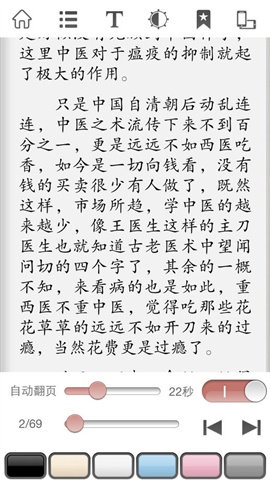 T
这里中医对于瘟疫的抑制就起
了极大的作用。
只是中国自清朝后动乱连
连，中医之术流传下来不到百
分之一，更是远远不如西医吃
香，如今是一切向钱看，没有
钱的买卖很少有人做了，既然
这样，市场所趋，学中医的越
来越少，像王医生这样的主刀
医生也就知道古老医术中望闻
问切的四个字了，其余的一概
不知，来看病的也是如此，重
西医不重中医，觉得吃那些花
花草草的远远不如开刀来的过
瘾，当然花费更是过瘾了。
自动翻页 22秒
2/69